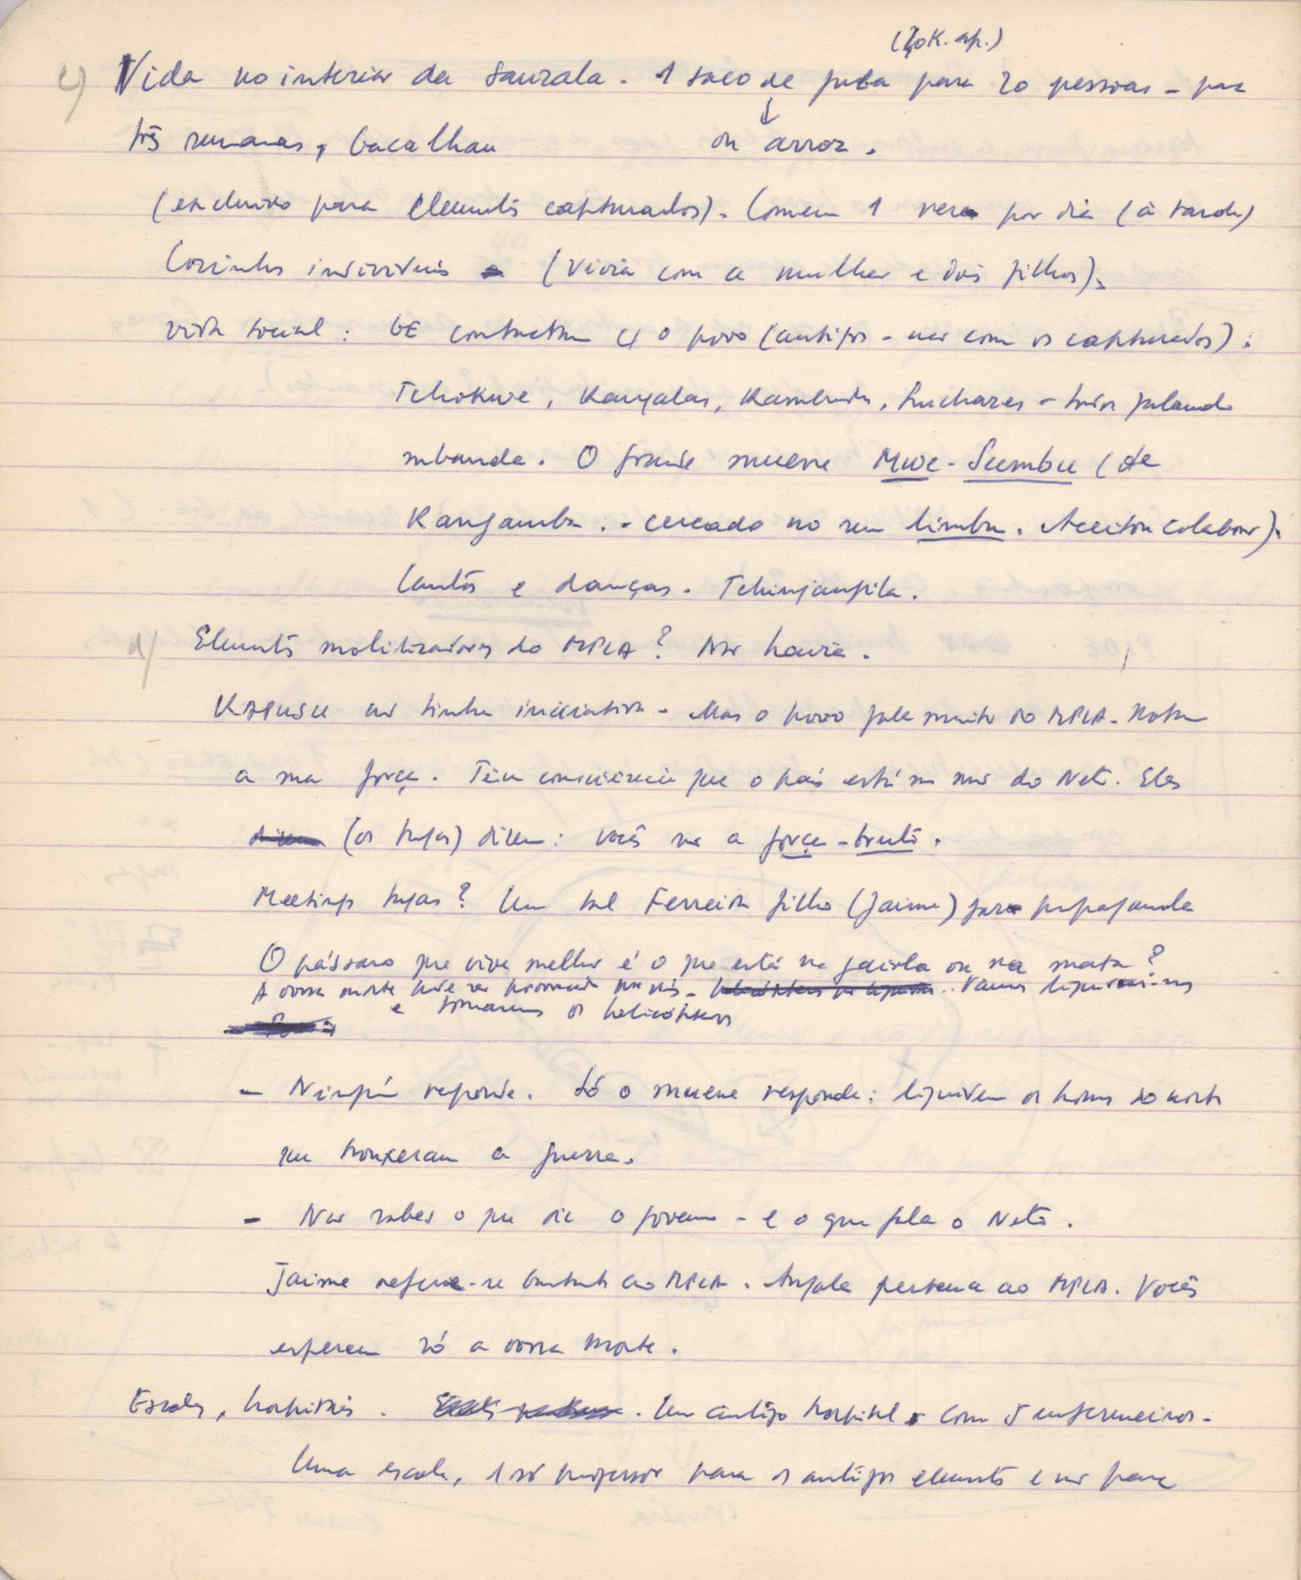 c) Vida no interior da sanzala. 1 saco de fuba para 20 pessoas - por
três semanas, bacalhau ou arroz.
(exclusivo para elementos capturados). Comem 1 vez por dia (à tarde)
Cozinhas individuais (vivia com a mulher e dois filhos).
vida social: GE contactam c/ o povo (antigos - não com os capturados):
Tchokwe, Kangalas, Kambundu, Luchazes - todos falando
mbunda. O grande muene Mwe-Sumbu (de
Kangamba. - cercado no seu limbu. Aceitou colaborar).
Cantos e danças. Tchinjanjila.
d) Elementos mobilizadores do MPLA? Não havia.
não tinha iniciativa - Mas o povo fala muito do MPLA.
a sua força. Têm consciência que o país está na mão do Neto. Eles
(os tugas) dizem: vocês são a força-bruta.
Meetings tugas? Um tal Ferreira filho (Jaime) faz propaganda
O pássaro que vive melhor é o que está na gaiola ou na mata?
A vossa morte pode ser provocada por nós. Vamos
e tomamos os helicópteros
- Ninguém responde. Só o muene responde: liquidem os homens do norte
que trouxeram a guerra.
- Não sabes o que diz o jovem - e o que fala o Neto.
Jaime refere-se bastante ao MPLA. Angola pertence ao MPLA. Vocês
esperem só a vossa morte.
Escolas, hospitais. Um antigo hospital com 5 enfermeiros.
Uma escola, 1 só professor para os antigos elementos e não para